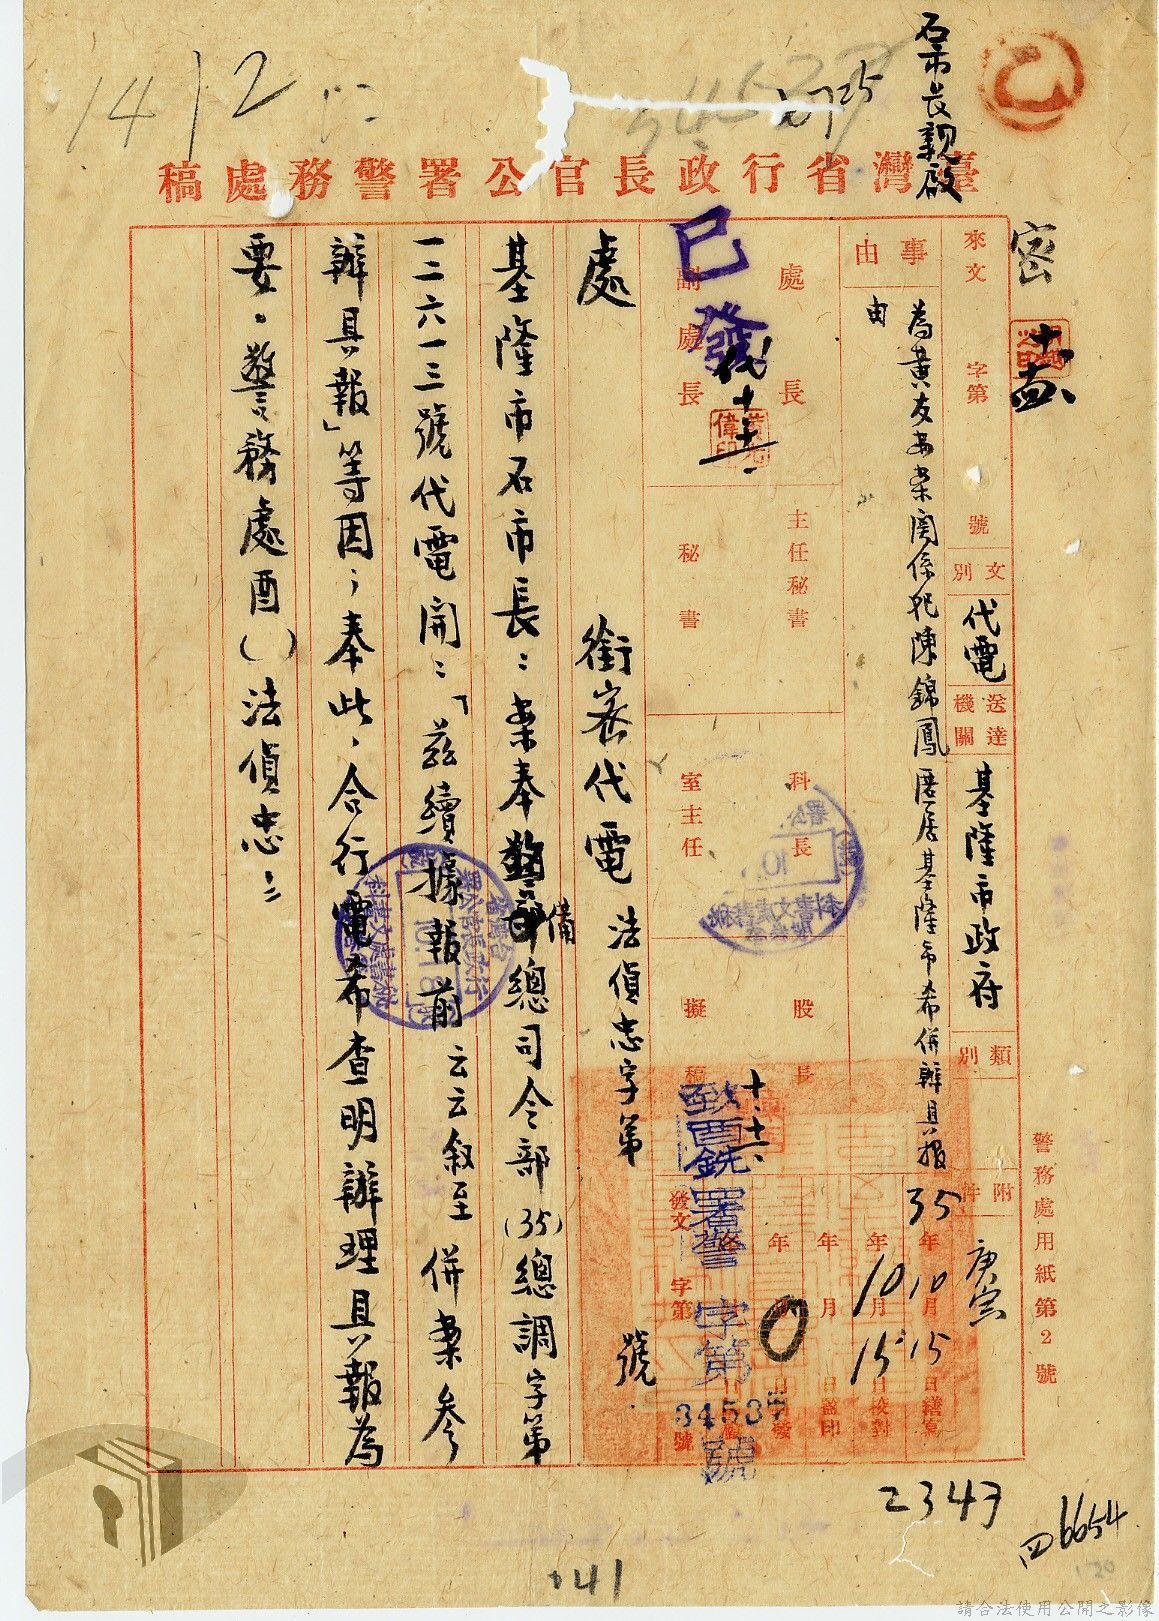 石市長親啟
1412
臺灣省行政長官公署警務處稿
密
來文 字第 號
文別 代電
送達機關 基隆市政府
類別
附件
事由
為黃友安案關係犯陳錦鳳匿居基隆市希併辦具報
由
處長
副處長
已發
主任秘書
秘書
科長
室主任
股長
擬稿
35年10月15日繕寫
10月15日校對
年月日蓋印
發文 字第 號
致酉銑署警 字第 號
處 銜密代電 法偵忠字第 號
基隆市石市長：案奉警備總司令部(35)總調字第
一二六一三號代電開：「茲續據報前云云敘至併案參
辦具報」等因；奉此，合行電希查明辦理具報為
要。警務處酉( )法偵忠
警務處用紙第2號
庚字
2343
四6654
141
請合法使用公開之影像